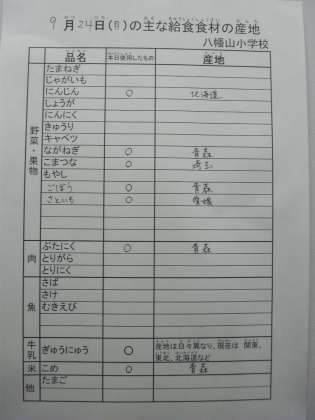 9月24日(月)の主な給食食材の産地
八幡山小学校
品名 本日使用したもの 産地
野菜・果物
たまねぎ
じゃがいも
にんじん ○ 北海道
しょうが
にんにく
きゅうり
キャベツ
ながねぎ ○ 青森
こまつな ○ 埼玉
もやし
ごぼう ○ 青森
さといも ○ 愛媛
肉
ぶたにく ○ 青森
とりがら
とりにく
魚
さば
さけ
むきえび
牛乳 ぎゅうにゅう ○ 産地は日々異なり、現在は 関東、
東北、北海道など
米 こめ ○ 青森
他 たまご